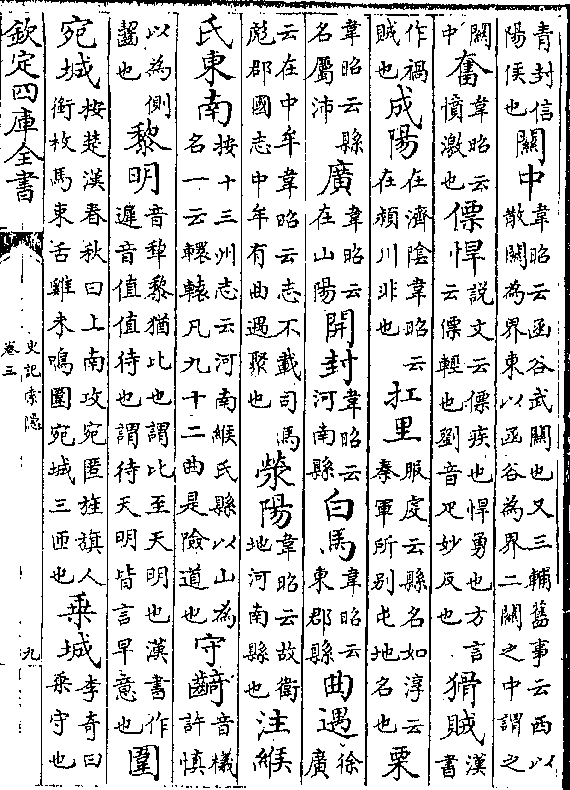 青封信陽侯也關中韋昭云函谷武關也又三輔舊事云西以散關為界東以函谷為界二關之中謂之
關中奮韋昭云憤激也僄悍說文云僄疾也悍勇也方言云僄輕也劉音疋妙反也猾賊漢書
作禍賊也成陽在濟陰韋昭云在潁川非也扛里服虔云縣名如淳云秦軍所别屯地名也栗
韋昭云縣名屬沛廣韋昭云在山陽開封韋昭云河南縣白馬韋昭云東郡縣曲遇徐廣
云在中牟韋昭云志不載司馬彪郡國志中牟有曲遇聚也滎陽韋昭云故衛地河南縣也注緱
氏東南按十三州志云河南緱氏縣以山為名一云轘轅凡九十二曲是險道也守齮音蟻許慎
以為側齧也黎明音犁黎猶比也謂比至天明也漢書作遲音值值待也謂待天明皆言早意也圍
宛城按楚漢春秋曰上南攻宛匿旌旗人銜枚馬束舌雞未鳴圍宛城三匝也乗城李奇曰乗守也
欽定四庫全書
史記索隱
卷三
九